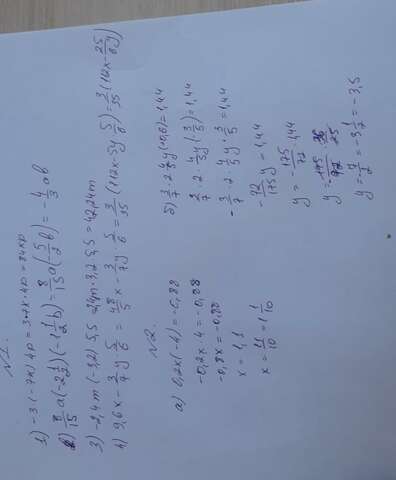 N1.
1) -3(-7x)4p = 3·7x·4p = 84xp
2) 8/15 a(-2 1/2)(-1 1/2 b) = 8/15 a(5/2 b) = -4/3 ab
3) -2,4m(-3,2)5,5 = 2,4m·3,2·5,5 = 42,24m
4) 9,6x - 3/7 y 5/6 = 48/5 x - 3/7 y 5/6 = 3/35 (112x - 5y 5/6) = 3/35 (112x - 25/6 y)
N2.
а) 0,2x(-4) = -0,88
-0,2x·4 = -0,88
-0,8x = -0,88
x = 1,1
x = 11/10 = 1 1/10
б) 3/7·2 4/5 y(-0,6) = 1,44
3/7·2 4/5 y(-3/5) = 1,44
-3/7·2 4/5 y·3/5 = 1,44
-72/175 y = 1,44
y = -175/72·1,44
y = -175/72·36/25
y = -7/2 = -3 1/2 = -3,5